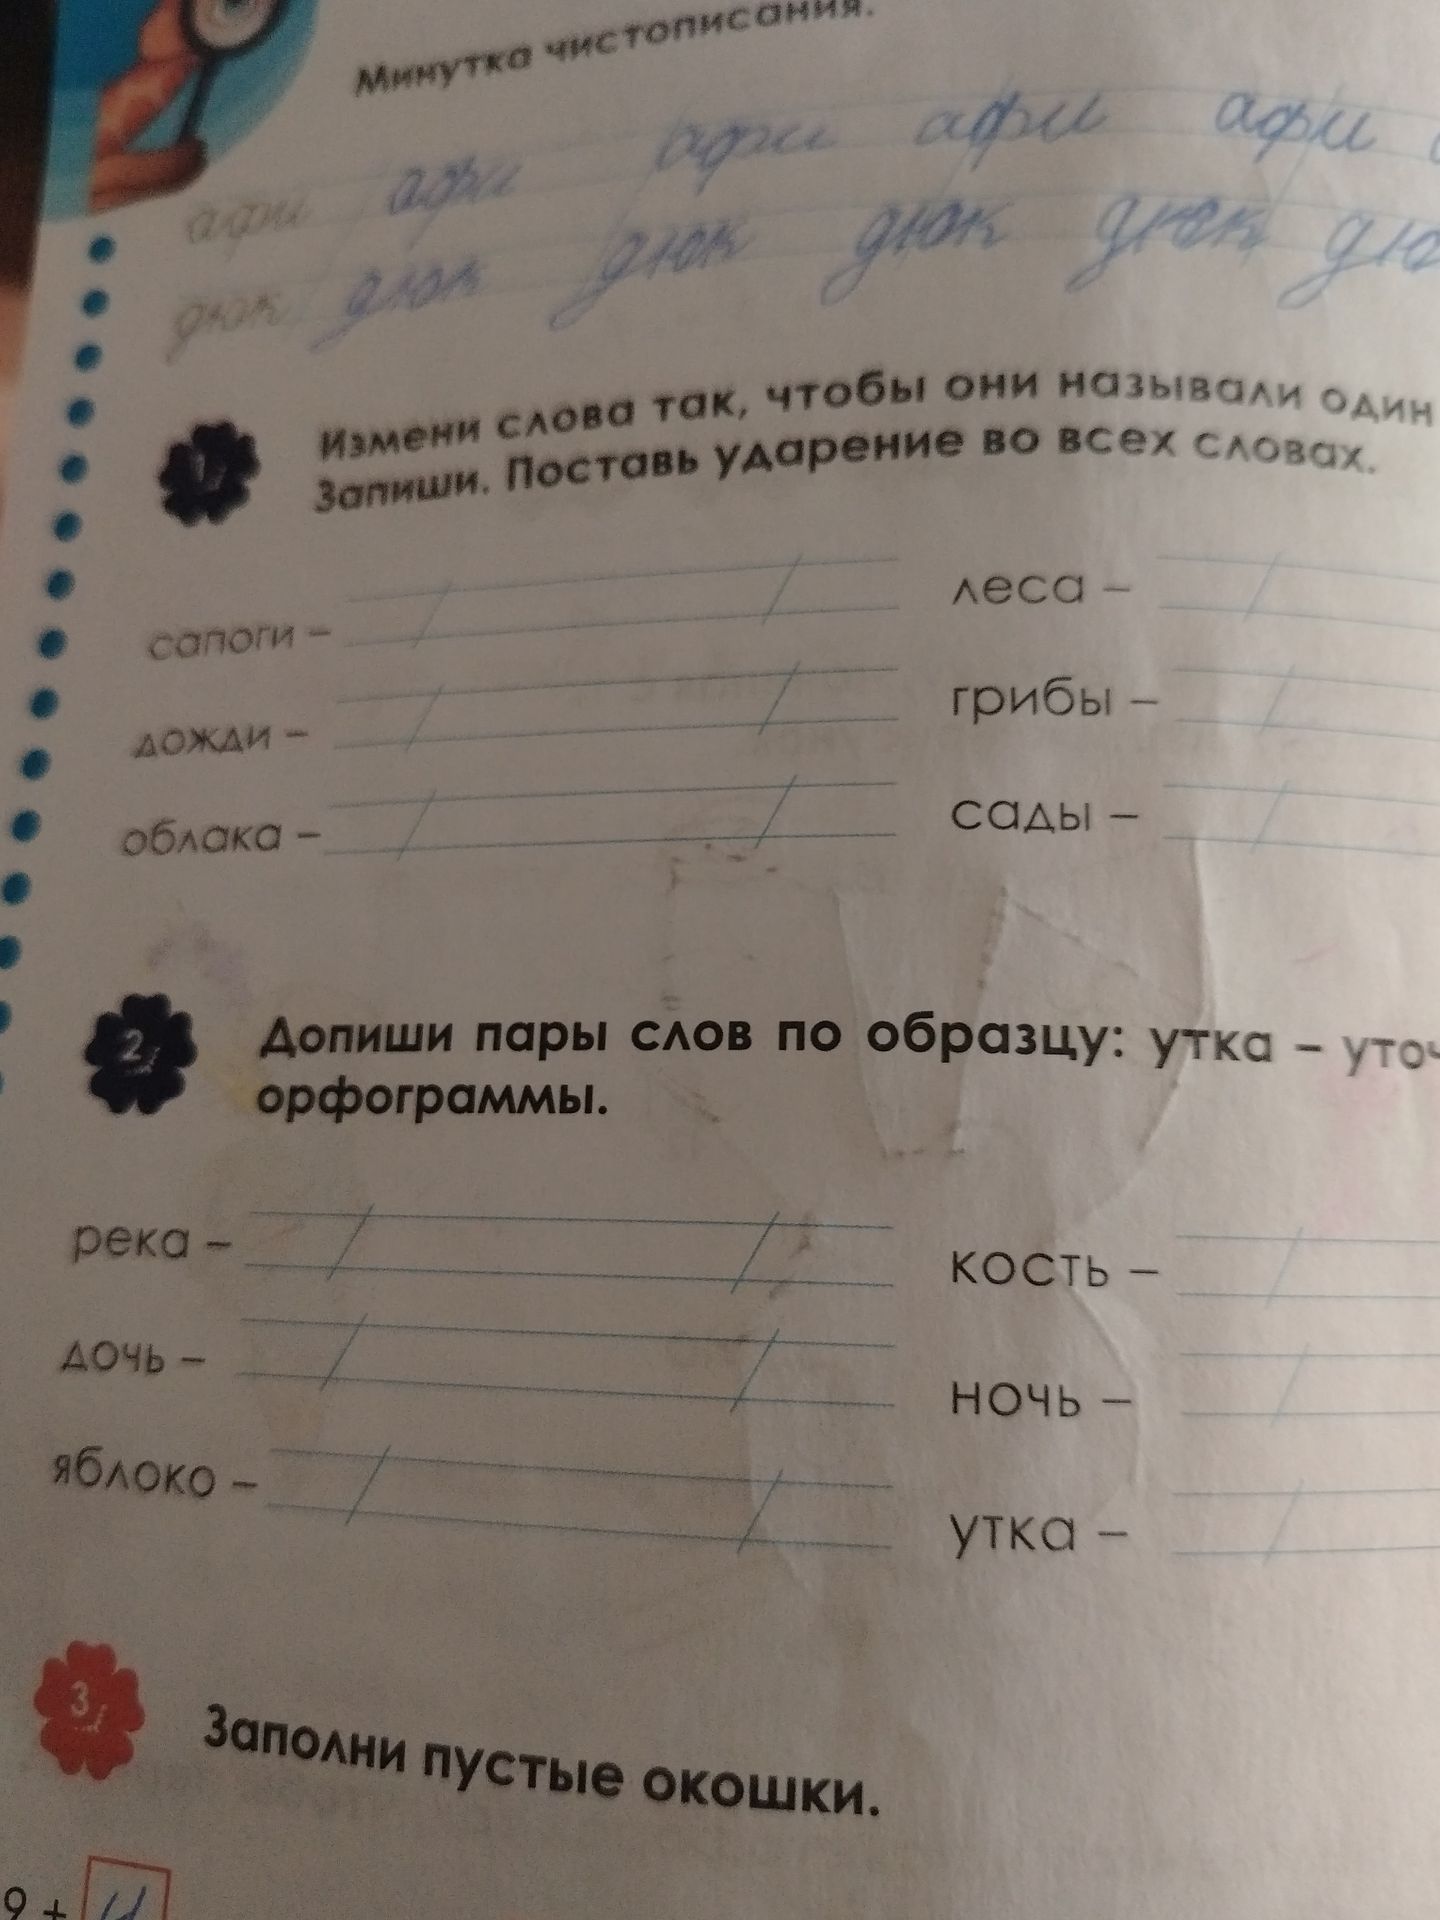 Минутка чистописания.
афи афи афи афи афи
дюк дюк дюк дюк дюк дю
1
Измени слова так, чтобы они называли один
Запиши. Поставь ударение во всех словах.
сапоги – леса –
дожди – грибы –
облака – сады –
2
Допиши пары слов по образцу: утка – уточ
орфограммы.
река – кость –
дочь – ночь –
яблоко – утка –
3
Заполни пустые окошки.
9 +